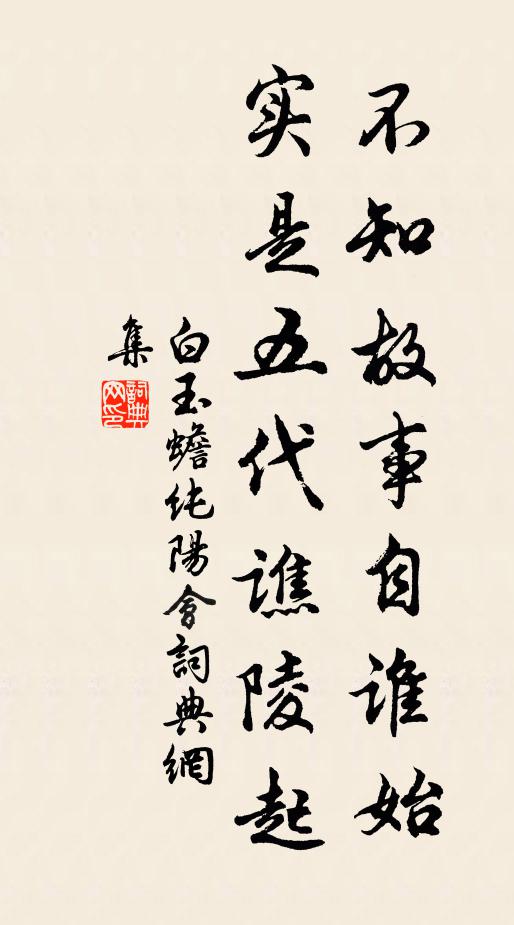 不知故事自谁始
实是五代谯陵起
白玉蟾纯陽會詞典網
集
詞典
网印